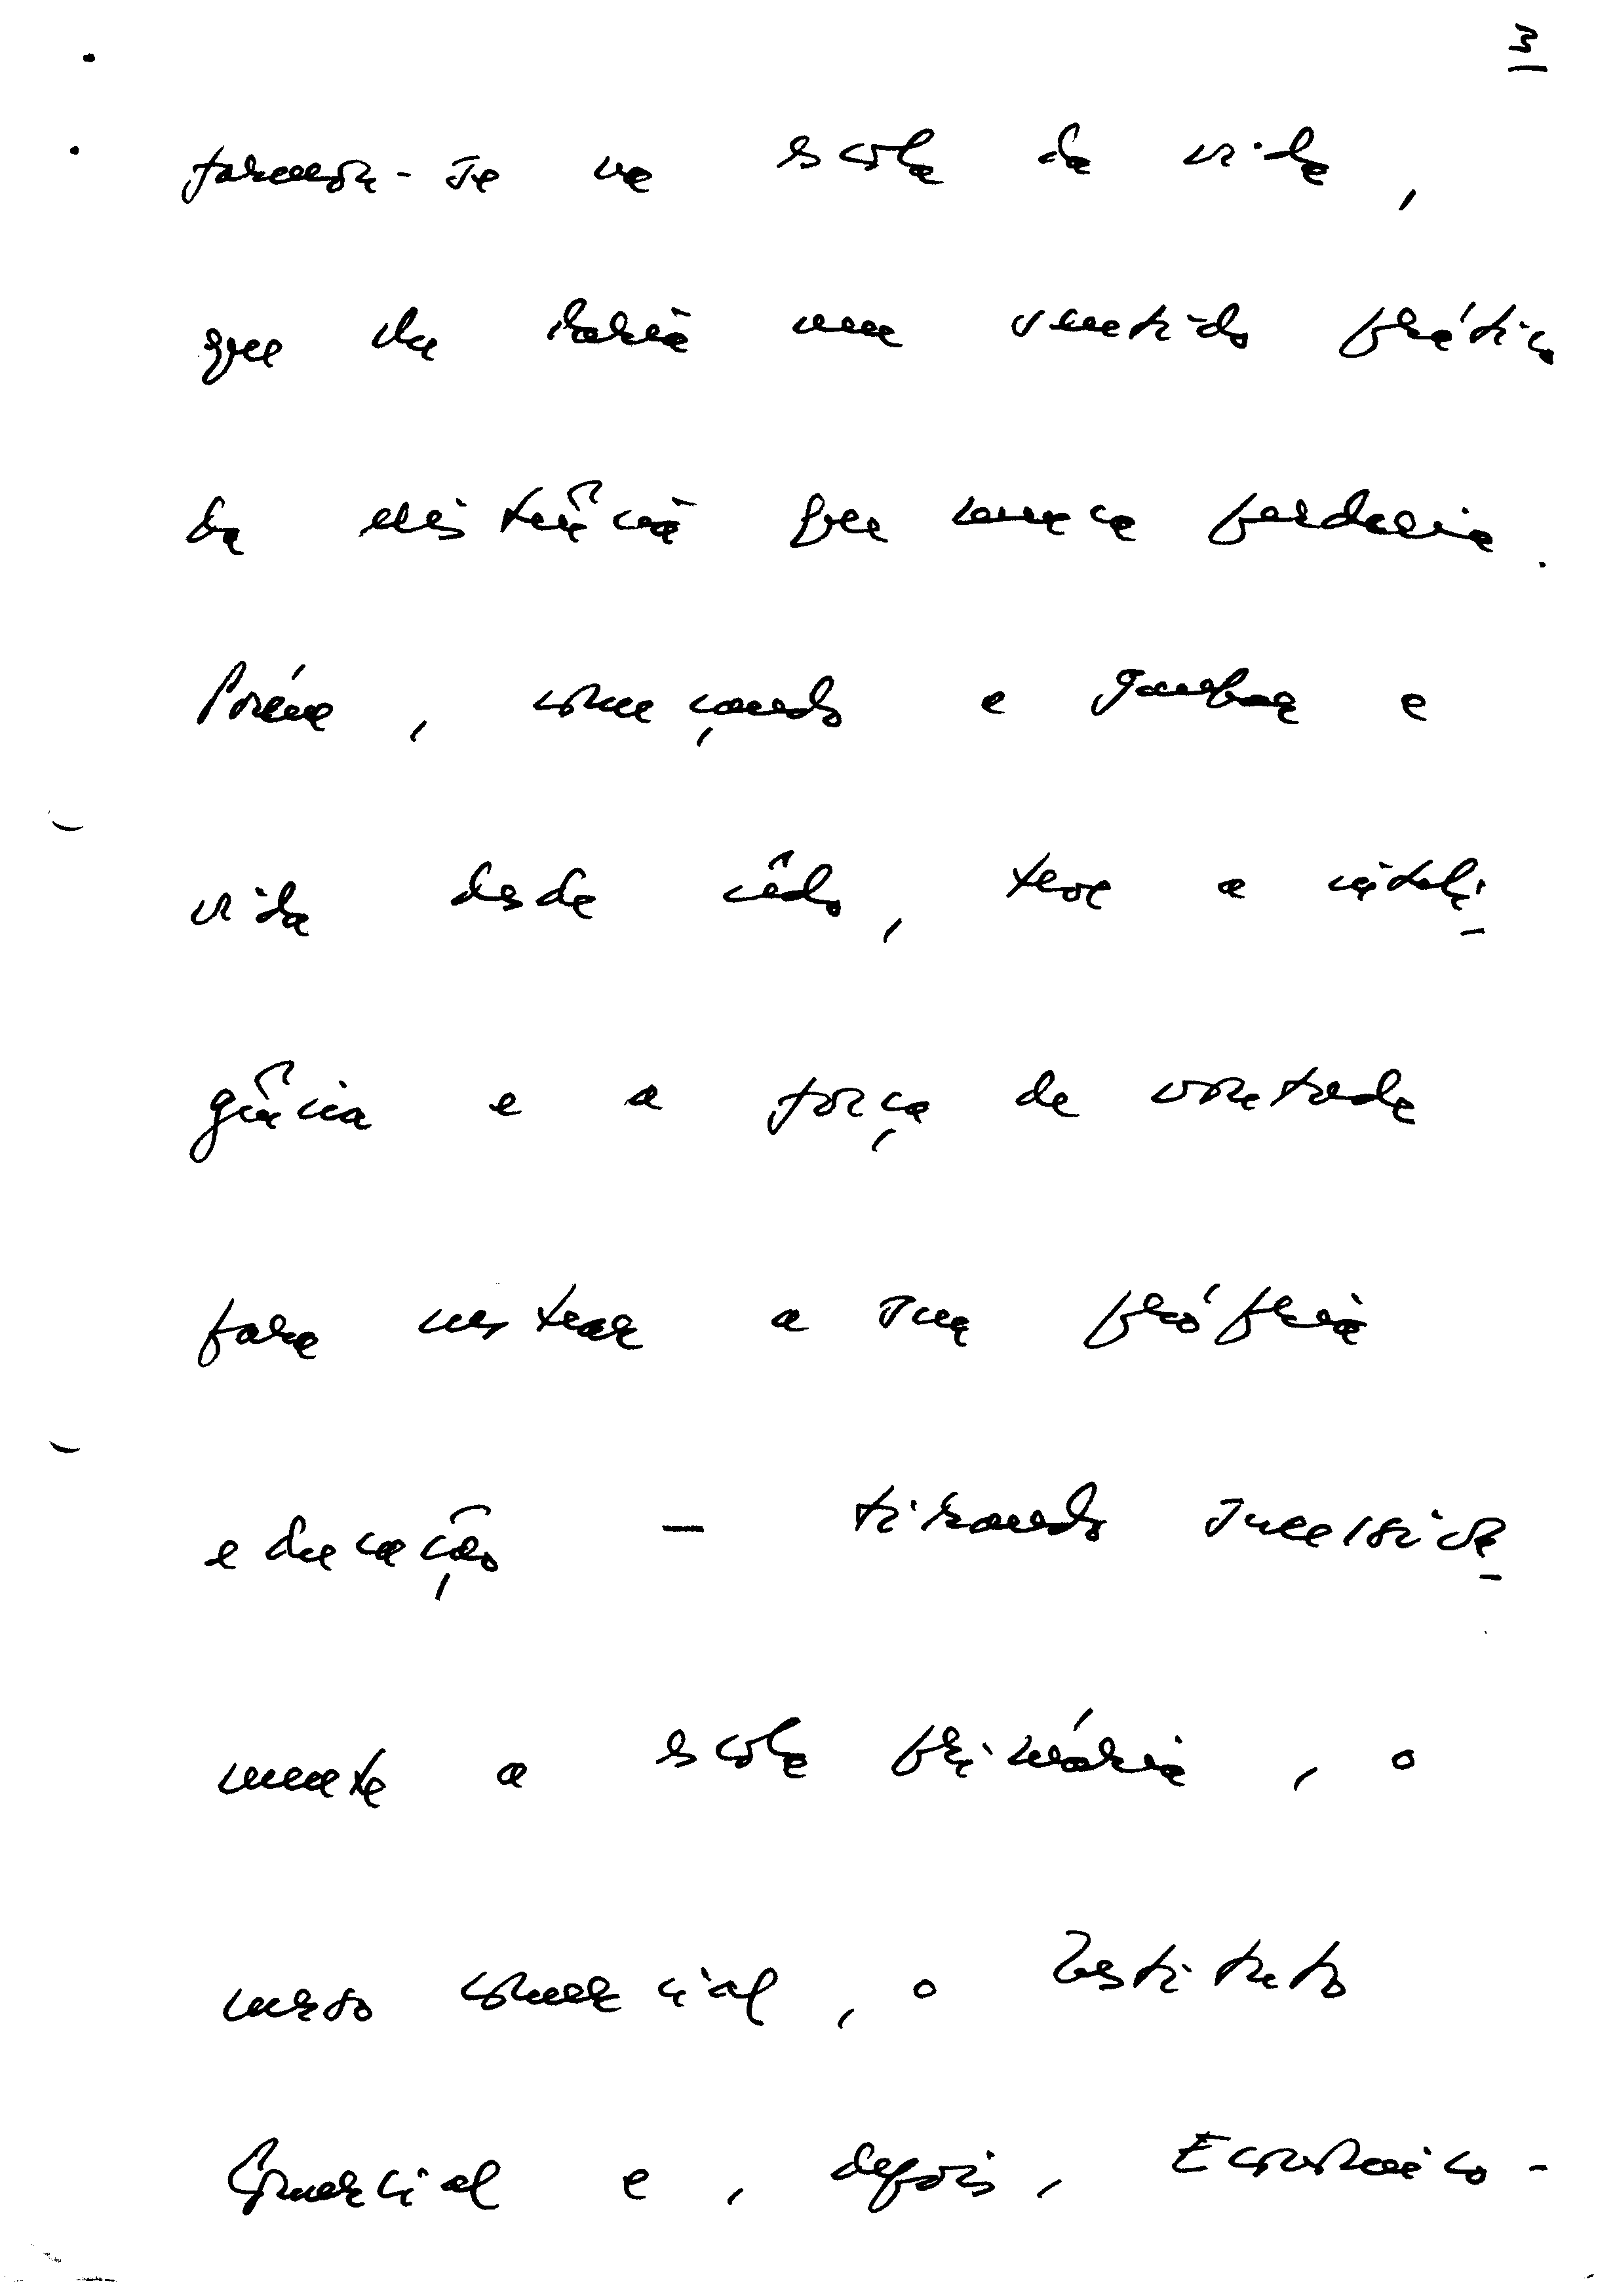 3
formou-se na escola da vida,
que lhe daria um sentido prático
da existência que nunca perderia.
Porém, começando a ganhar a
vida desde cêdo, teve a inteli-
gência e a força de vontade
para custear a sua própria
educação – tirando sucessiva-
mente a escola primária, o
curso comercial, o Instituto
Comercial e, depois, Económico-